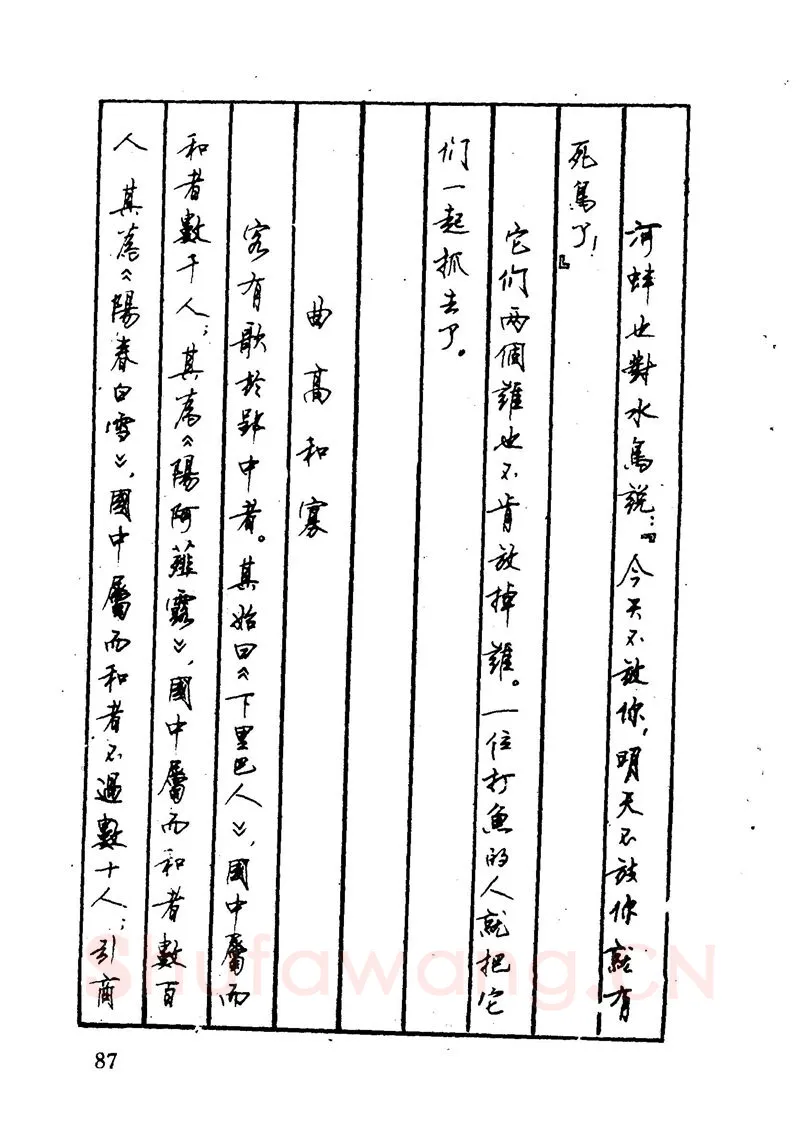 河蚌也對水鳥説：『今天不放你，明天不放你就有
死鳥了！』
它们两個誰也不肯放掉誰。一位打魚的人就把它
们一起抓去了。
曲高和寡
客有歌於郢中者。其始曰《下里巴人》，國中屬而
和者數千人；其為《陽阿薤露》，國中屬而和者數百
人 其為《陽春白雪》，國中屬而和者不過數十人；引商
87
Shufawang.CN